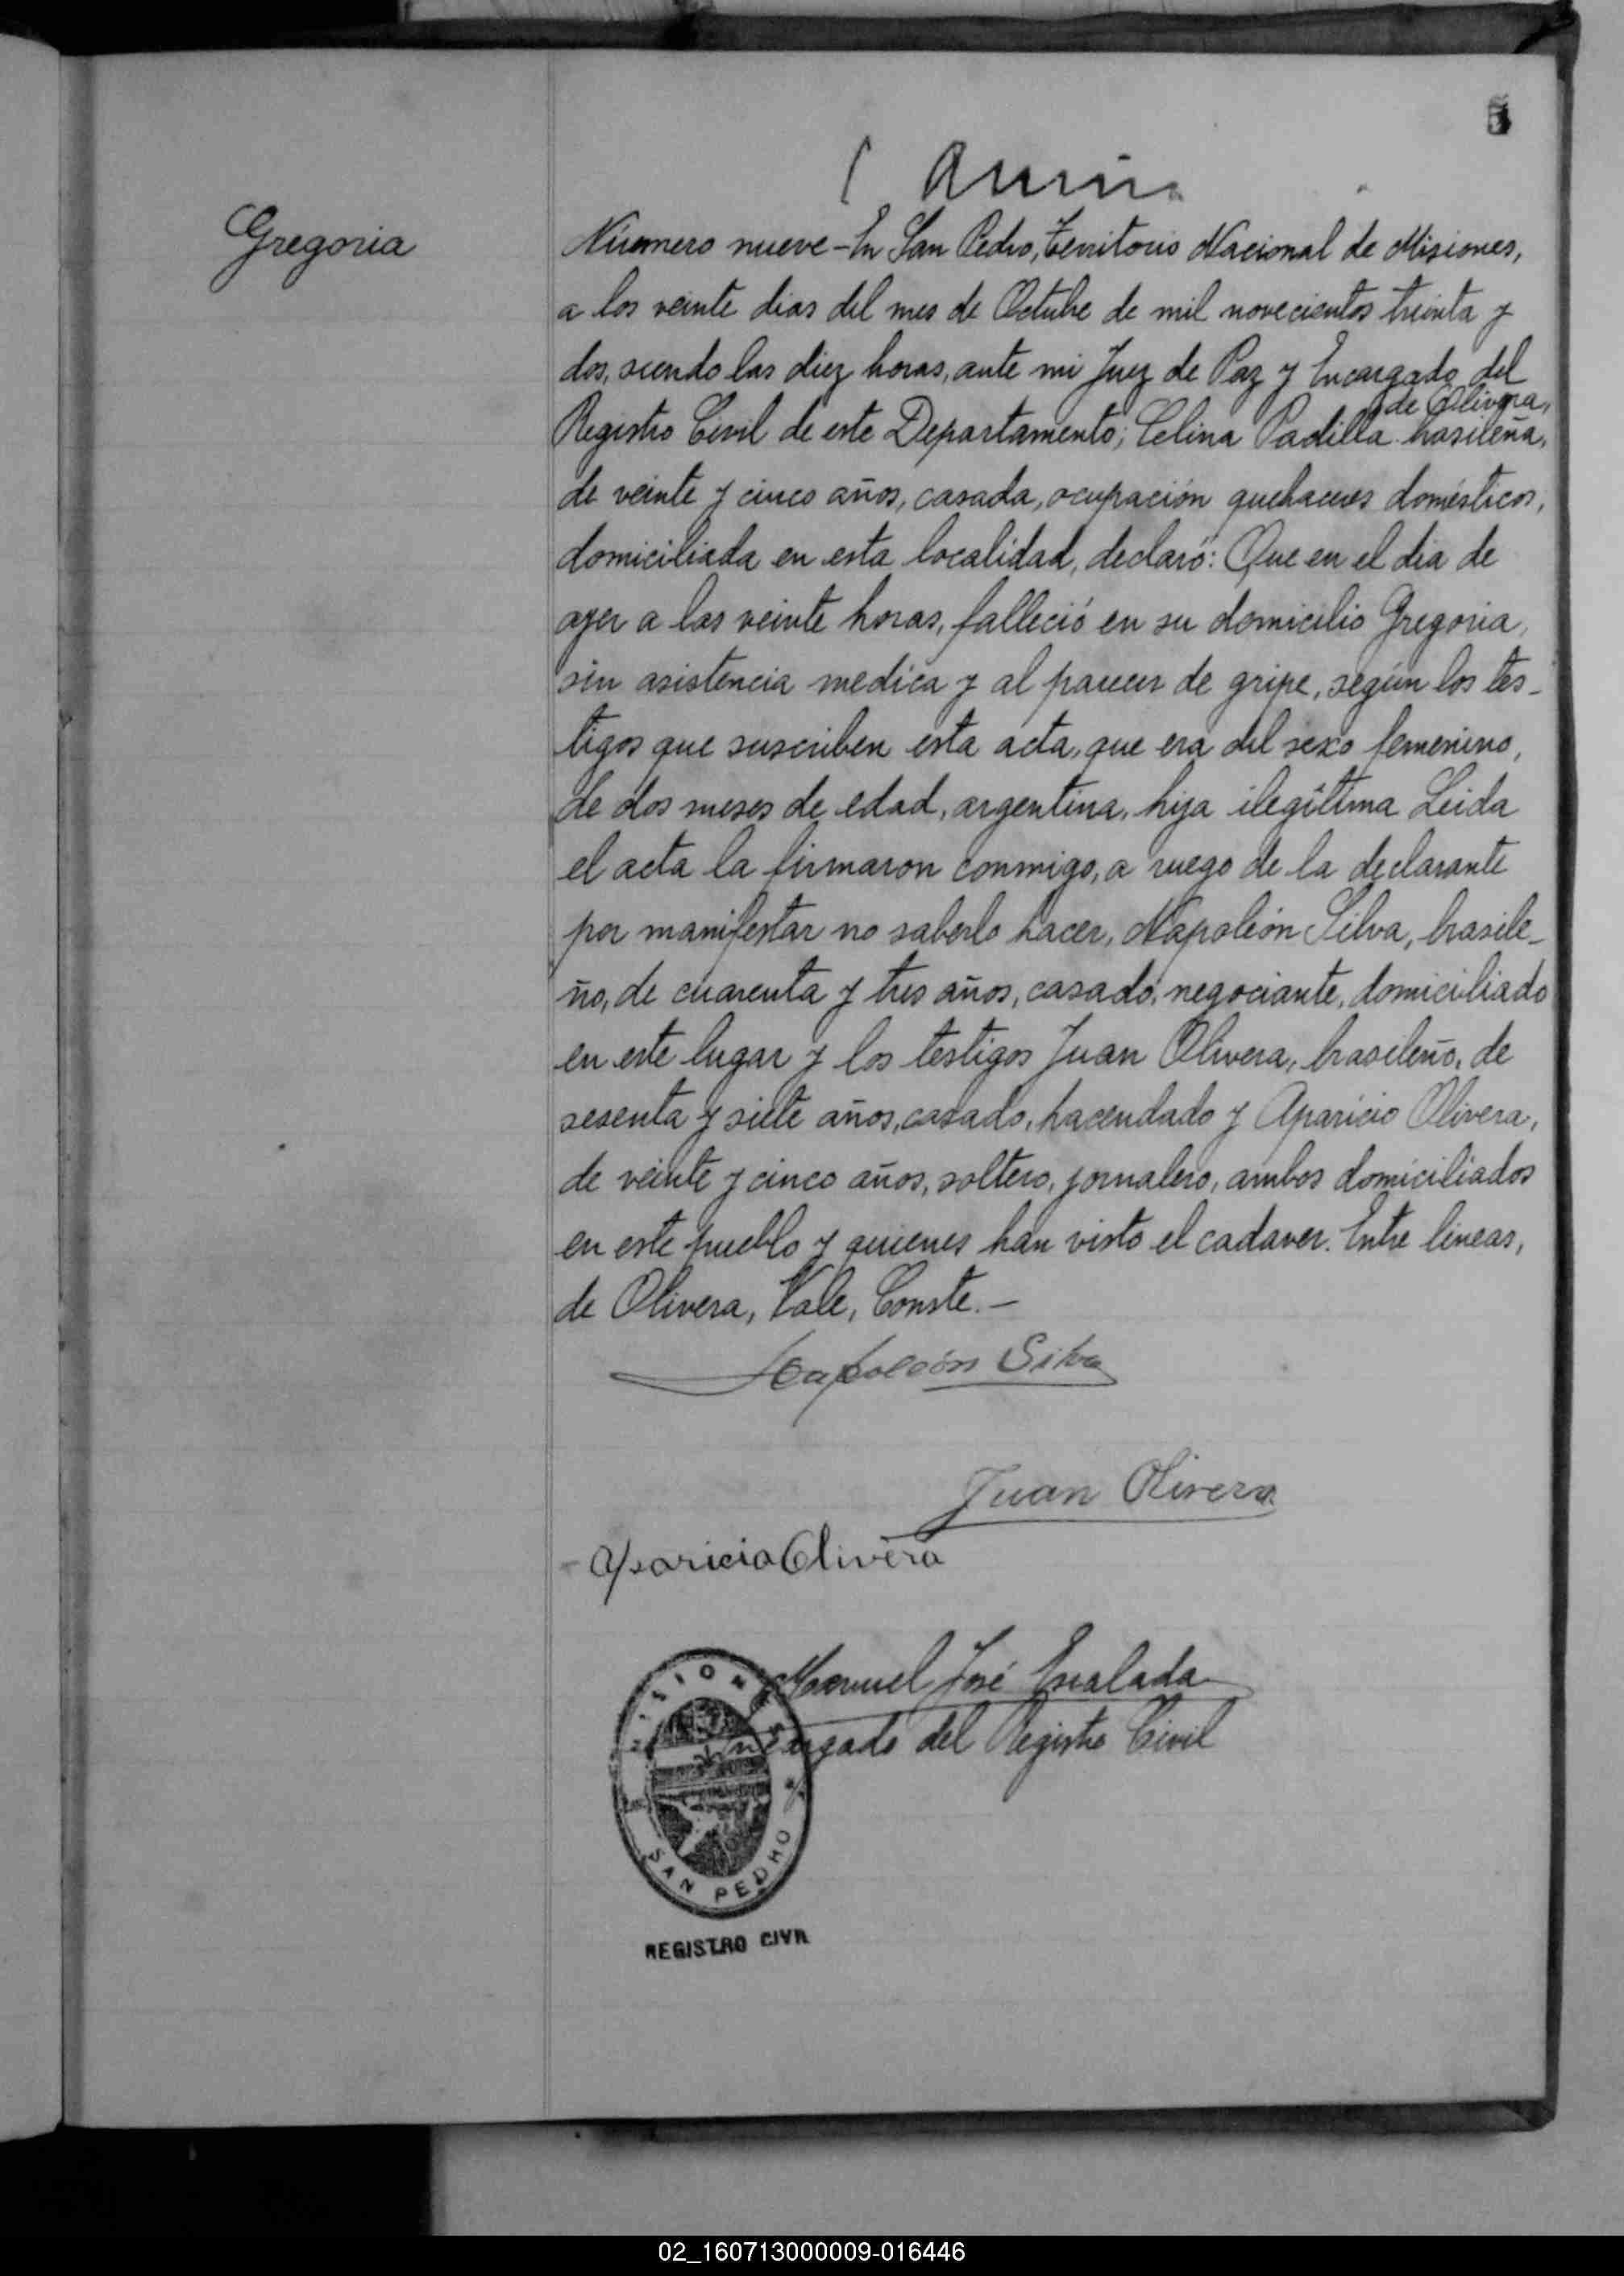 Gregoria
Número nueve - En San Pedro, Territorio Nacional de Misiones,
a los veinte dias del mes de Octubre de mil novecientos treinta y
dos, siendo las diez horas, ante mi Juez de Paz y Encargado del
de Olivera,
Registro Civil de este Departamento; Celina Padilla brasileña,
de veinte y cinco años, casada, ocupación quehaceres domésticos,
domiciliada en esta localidad, declaró: Que en el dia de
ayer a las veinte horas, falleció en su domicilio Gregoria,
sin asistencia medica y al parecer de gripe, según los tes-
tigos que suscriben esta acta, que era del sexo femenino,
de dos meses de edad, argentina, hija ilegítima Leida
el acta la firmaron conmigo, a ruego de la declarante
por manifestar no saberlo hacer, Napoleón Silva, brasile-
ño, de cuarenta y tres años, casado, negociante, domiciliado
en este lugar y los testigos Juan Olivera, brasileño, de
sesenta y siete años, casado, hacendado y Aparicio Olivera,
de veinte y cinco años, soltero, jornalero, ambos domiciliados
en este pueblo y quienes han visto el cadaver. Entre lineas,
de Olivera, Vale, Conste. -
Napoleón Silva
Juan Olivera
Aparicio Olivera
Manuel José
Encargado del Registro Civil
MISIONES
SAN PEDRO
REGISTRO CIVIL
02_160713000009-016446